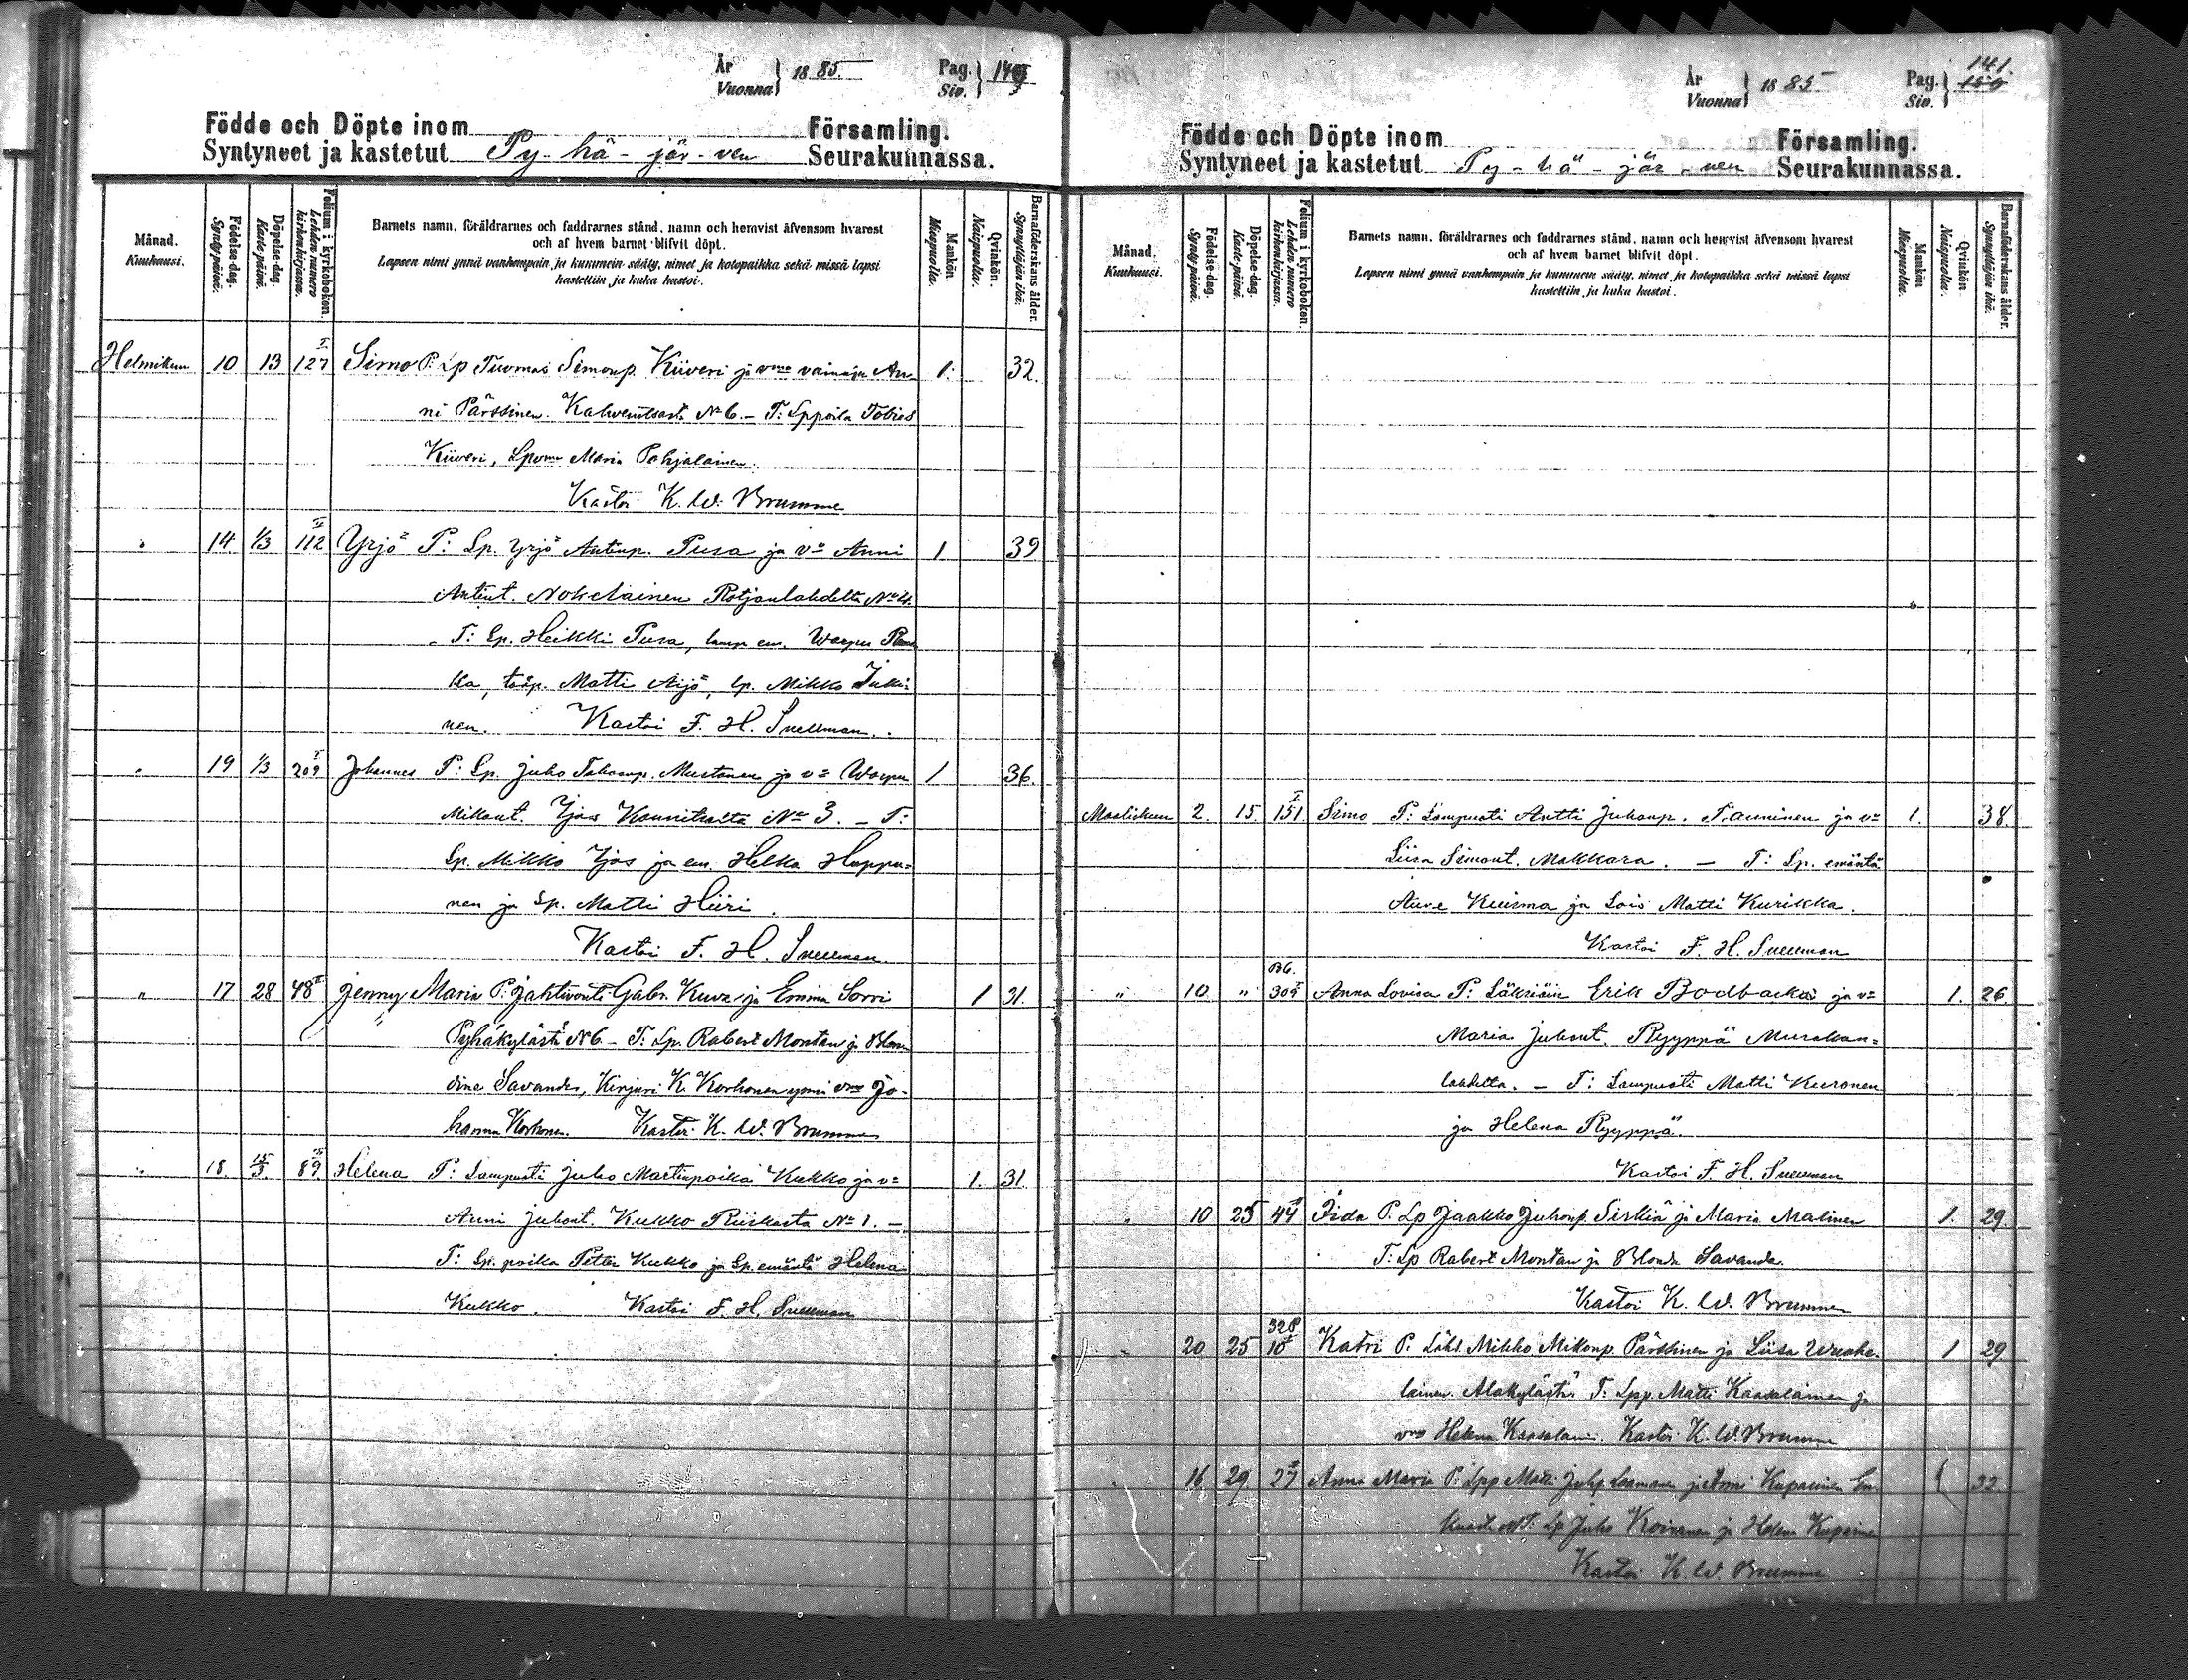 År
Vuonna } 1885.
Pag.
Siv. } 140
Födde och Döpte inom Församling.
Syntyneet ja kastetut Py-hä-jär-ven Seurakunnassa.
Månad.
Kuukausi.
Födelse dag.
Syntypäivä.
Döpelse dag.
Kastepäivä.
Folium i kyrkoboken.
Lehden numero kirkonkirjassa.
Barnets namn, föräldrarnes och faddrarnes stånd, namn och hemvist äfvensom hvarest
och af hvem barnet blifvit döpt.
Lapsen nimi ynnä vanhempain ja kummein sääty, nimet ja kotopaikka sekä missä lapsi
kastettiin ja kuka kastoi.
Mankön.
Miespuolta.
Qvinkön.
Naispuolta.
Barnaföderskans ålder.
Synnyttäjän ikä.
Helmikuu 10 13 I 127 Simo P: Lp Tuomas Simonp. Kiiveri ja vmo An- 1. 32.
ni Pärssinen. No 6. – T: Tobias
Kiiveri, Maria Pohjalainen.
Kastoi K. W. Brumme
" 14 1/3 II 112 Yrjö P: Lp. Yrjö Antinp. Pusa ja vo Anni 1 39
Antint. Nokelainen No 4.
T: Lp. Heikki Pusa, em. Warpu
ka, Matti Äijö, lp. Mikko
nen. Kastoi F. H. Snellman.
" 19 1/3 I 209 Johannes P: Lp. Juho Mustonen ja vo Warpu 1 36.
Mikont. Ijäs Konnitsalta No 3. – T:
Lp. Mikko Ijäs ja em. Helka Huppu-
nen ja Lp. Matti Hiiri.
Kastoi F. H. Snellman.
" 17 28 48 Jenny Maria P: Jahtivouti Gabr. Kuva ja Emma Sorri 1 31.
Pyhäkylästä N 6 – T: Lp. Robert Montan ja Blon-
dine Savander, K. Korhonen ynnä vmo Jo-
hanna Korhonen. Kastoi K. W. Brumme
" 18. 15/3. 89 Helena P: Lampuoti Juho Martinpoika Kukko ja vo 1. 31.
Anni Juhont. Kukko Riiskasta No 1. –
T: Lp. poika Petter Kukko ja Lp. emäntä Helena
Kukko. Kastoi F. H. Snellman
År
Vuonna } 1885
Pag.
Siv. } 141. 150
Födde och Döpte inom Församling.
Syntyneet ja kastetut Py-hä-jär-ven Seurakunnassa.
Månad.
Kuukausi.
Födelse dag.
Syntypäivä.
Döpelse dag.
Kastepäivä.
Folium i kyrkoboken.
Lehden numero kirkonkirjassa.
Barnets namn, föräldrarnes och faddrarnes stånd, namn och hemvist äfvensom hvarest
och af hvem barnet blifvit döpt.
Lapsen nimi ynnä vanhempain ja kummein sääty, nimet ja kotopaikka sekä missä lapsi
kastettiin ja kuka kastoi.
Mankön
Miespuolta.
Qvinkön
Naispuolta.
Barnaföderskans ålder.
Synnyttäjän ikä.
Maaliskuu 2. 15. I 151. Simo P: Lampuoti Antti Juhonp. Tanninen ja vo 1. 38.
Liisa Simont. Makkara. – T: Lp. emäntä
Kuisma ja Lois Matti Kurikka.
Kastoi F. H. Snellman
" 10 " 309 Anna Lovisa P: Läkriöin Erik Bodbacka ja vo 1. 26.
Maria Juhont. Ryyppä Musakan-
lahdelta. – T: Lampuoti Matti Kuronen
ja Helena Ryyppä.
Kastoi F. H. Snellman
" 10 25 44 Iida P: Lp Jaakko Juhonp Siskiä ja Maria Malinen 1. 29.
T: Lp Robert Montan ja Blonda Savander.
Kastoi K. W. Brumme
" 20 25 328 Katri P. Mikko Mikonp. Pärssinen ja Liisa 1 29
lainen. Alakylästä. T: Lpp. Matti Kaasalainen ja
vmo Helena Kaasalainen. Kastoi K. W. Brumme
16 29 27 Anna Maria P: Lpp Matti Juhp. ja Anni Kuparinen 32
T: Lp Juho Koivanen ja Helena Kuparinen
Kastoi K. W. Brumme